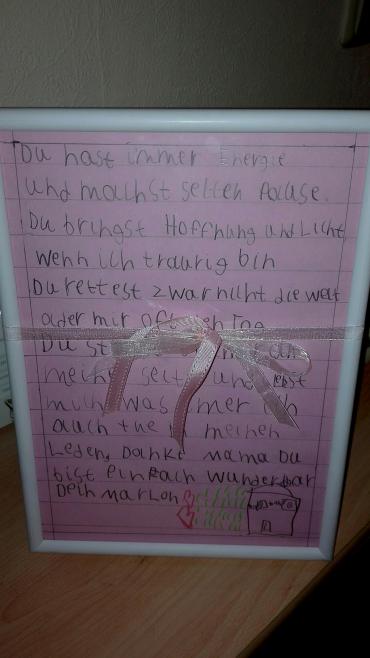 Du hast immer Energie
und machst selten Pause.
Du bringst Hoffnung und Licht
wenn ich traurig bin
Du rettest zwar nicht die welt
aber mir den Tag
Du
und
mich was ich
auch tue in meinen
Leben, Danke Mama Du
bist einfach wunderbar
Dein Marlon